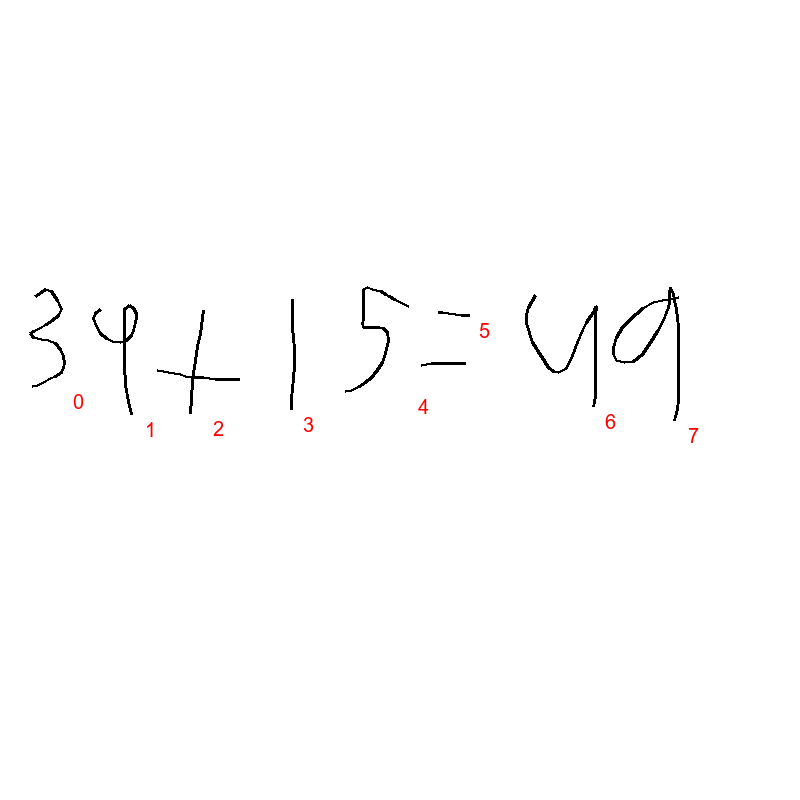 34+15=49
0 1 2 3 4 5 6 7